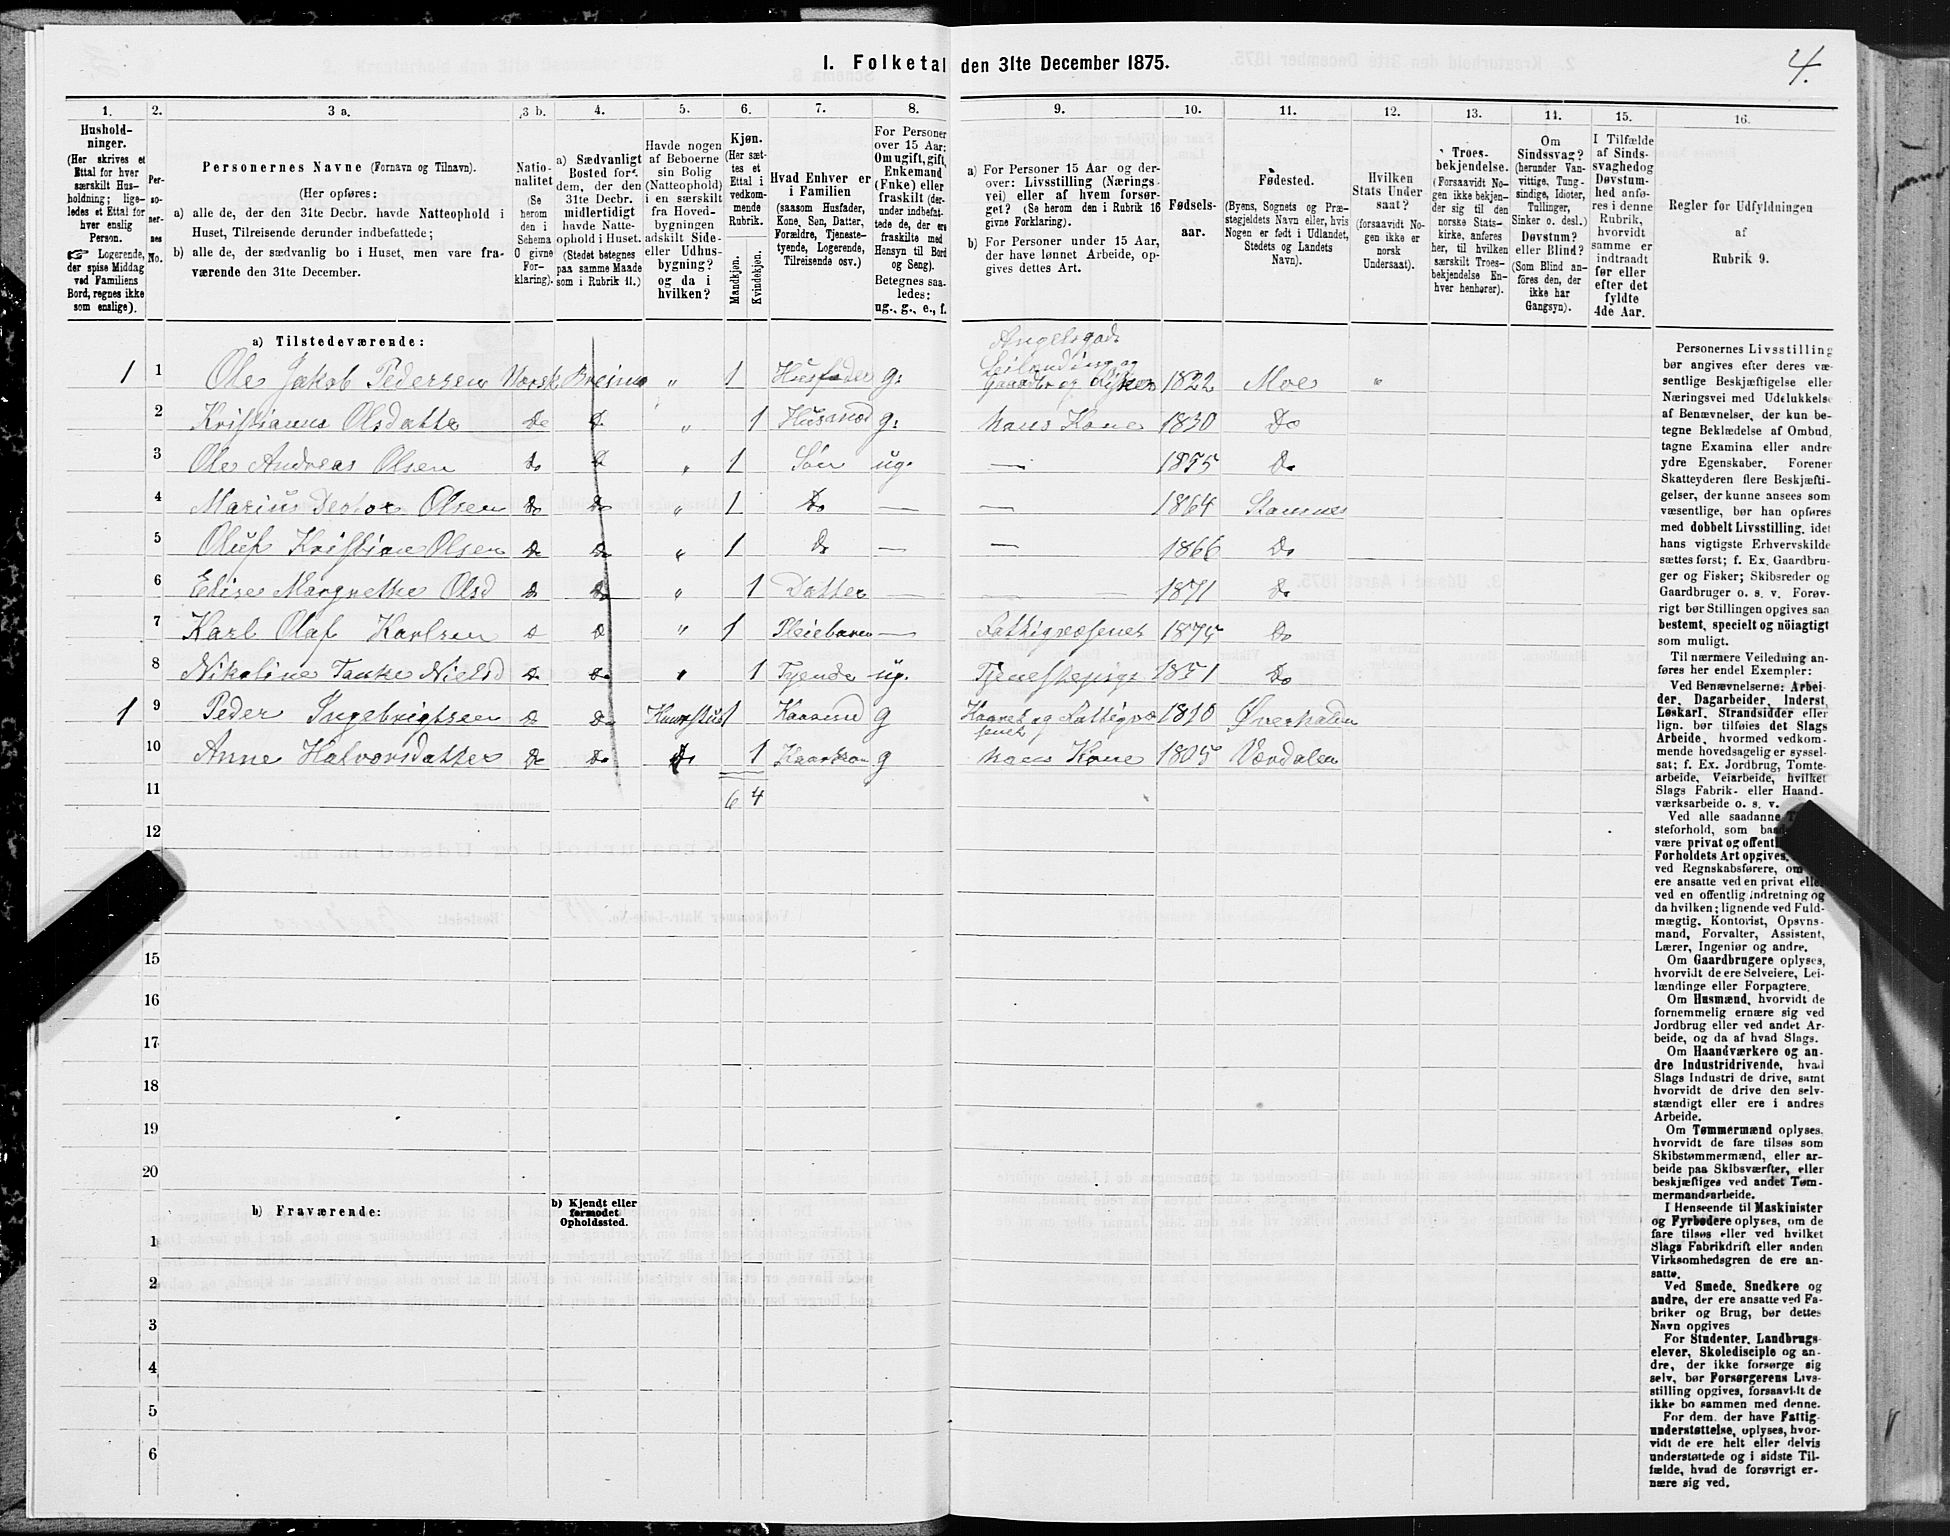 4.
1. Folketal den 31te December 1875.
1.
2.
3 a.
3 b.
4.
5.
6.
7.
8.
9.
10.
11.
12.
13.
14.
15.
16.
Hushold-
ninger.
(Her skrives et
Ettal for hver
særskilt Hus-
holdning; lige-
ledes et Ettal for
hver enslig
Person.
☞ Logerende,
der spise Middag
ved Familiens
Bord, regnes ikke
som enslige).
Per-
so-
ner-
nes
No.
Personernes Navne (Fornavn og Tilnavn).
(Her opføres:
a) alle de, der den 31te Decbr. havde Natteophold i
Huset, Tilreisende derunder indbefattede;
b) alle de, der sædvanlig bo i Huset, men vare fra-
værende den 31te December.
Natio-
nalitet
(Se
herom
den i
Schema
O givne
For-
klaring).
a) Sædvanligt
Bosted for
dem, der den
31te Decbr.
midlertidigt
havde Natte-
ophold i Huset.
(Stedet betegnes
paa samme Maade
som i Rubrik 11.)
Havde nogen
af Beboerne
sin Bolig
(Natteophold)
i en særskilt
fra Hoved-
bygningen
adskilt Side-
eller Udhus-
bygning?
og da i
hvilken?
Kjøn.
(Her sæt-
tes et
Ettal i
vedkom-
mende
Rubrik.
Mandkjøn.
Kvindekjøn.
Hvad Enhver er
i Familien
(saasom Husfader,
Kone, Søn, Datter,
Forældre, Tjeneste-
tyende, Logerende,
Tilreisende osv.)
For Personer
over 15 Aar:
Om ugift, gift,
Enkemand
(Enke) eller
fraskilt (der-
under indbefat-
tede de, der ere
fraskilte med
Hensyn til Bord
og Seng).
Betegnes saa-
ledes:
ug., g., e., f.
a) For Personer 15 Aar og der-
over: Livsstilling (Nærings-
vei) eller af hvem forsør-
get? (Se herom den i Rubrik 16
givne Forklaring).
b) For Personer under 15 Aar,
der have lønnet Arbeide, op-
gives dettes Art.
Fødsels-
aar.
Fødested.
(Byens, Sognets og Præ-
stegjeldets Navn eller, hvis
Nogen er født i Udlandet,
Stedets og Landets
Navn).
Hvilken
Stats Under
saat?
(forsaavidt No-
gen ikke er
norsk
Undersaat).
Troes-
bekjendelse.
(Forsaavidt No-
gen ikke bekjen-
der sig til den
norske Stats-
kirke, anføres
her, til hvilken
særskilt Troes-
bekjendelse En-
hver henhører).
Om
Sindssvag?
(herunder Van-
vittige, Tung-
sindige, Idioter,
Tullinger,
Sinker o. desl.)
Døvstum?
eller Blind?
(Som Blind an-
føres den, der
ikke har
Gangsyn).
I Tilfælde
af Sinds-
svaghed og
Døvstum-
hed anfø-
res i denne
Rubrik,
hvorvidt
samme er
indtraadt
før eller
efter det
fyldte
4de Aar.
Regler for Udfyldningen
af
Rubrik 9.
a) Tilstedeværende:
Leilending og
1 1 Ole Jakob Pedersen Norsk " 1 Husfader g: Gaardbr og Fisker 1822 Moe "
2 Kristianna Olsdatter Do Do " 1 g: hans Kone 1830 Do
3 Ole Andreas Olsen Do Do " 1 Søn ug. — 1855 Do
4 Marius Olsen Do Do " 1 Do — — 1864 Stamnes
5 Oluf Kristian Olsen Do Do " 1 Do — — 1866 Do
6 Elise Margrethe Olsd Do Do " 1 Datter — — 1871 Do
7 Karl Olaf Karlsen Do Do " 1 Pleiebarn — Fattigvæsenet 1875 Do
8 Nikoline Tanke Nielsd Do Do " 1 Tjende ug. Tjenestepige 1851 Do
1 9 Peder Ingebrigtsen Do Do 1 g 1810 Overhalden
10 Anne Halvorsdatter Do Do Do 1 g hans Kone 1805 Værdalen
11 6 4
12
15
16
17
18
19
20
b) Fraværende:
b) Kjendt eller
formodet
Opholdssted.
1
2
3
4
5
6
Personernes Livsstilling
bør angives efter deres væ-
sentlige Beskjæftigelse eller
Næringsvei med Udelukkelse
af Benævnelser, der kun be-
tegne Beklædelse af Ombud,
tagne Examina eller andre
ydre Egenskaber. Forener
Skatteyderen flere Beskjæfti-
gelser, der kunne ansees som
væsentlige, bør han opføres
med dobbelt Livsstilling, idet
hans vigtigste Erhvervskilde
sættes først; f. Ex. Gaardbru-
ger og Fisker; Skibsreder og
Gaardbruger o. s. v. Forøv-
rigt bør Stillingen opgives saa
bestemt, specielt og nöiagtigt
som muligt.
Til nærmere Veiledning an-
føres her endel Exempler:
Ved Benævnelserne: Arbei-
der, Dagarbeider, Inderst,
Løskarl, Strandsidder eller
lign. bør tilføies det Slags
Arbeide, hvormed vedkom-
mende hovedsagelig er syssel-
sat; f. Ex. Jordbrug, Tomte-
arbeide, Veiarbeide, hvilket
Slags Fabrik- eller Haand-
værksarbeide o. s. v.
Ved alle saadanne
steforhold, som
være privat og offentl
Forholdets Art opgives,
ved Regnskabsførere, om
ere ansatte ved en privat eller
ved en offentlig Indretning og
da hvilken; lignende ved Fuld-
mægtig, Kontorist, Opsyns-
mand, Forvalter, Assistent,
Lærer, Ingeniør og andre.
Om Gaardbrugere oplyses,
hvorvidt de ere Selveiere, Lei-
lændinge eller Forpagtere.
Om Husmænd, hvorvidt de
fornemmelig ernære sig ved
Jordbrug eller ved andet Ar-
beide, og da af hvad Slags.
Om Haandværkere og an-
dre Industridrivende, hvad
Slags Industri de drive, samt
hvorvidt de drive den selv-
stændigt eller ere i andres
Arbeide.
Om Tømmermænd oplyses,
hvorvidt de fare tilsøs som
Skibstømmermænd, eller ar-
beide paa Skibsværfter, eller
beskjæftiges ved andet Tøm-
mermandsarbeide.
I Henseende til Maskinister
og Fyrbødere oplyses, om de
fare tilsøs eller ved hvilket
Slags Fabrikdrift eller anden
Virksomhedsgren de ere an-
satte.
Ved Smede, Snedkere og
andre, der ere ansatte ved Fa-
briker og Brug, bør dettes
Navn opgives
For Studenter, Landbrugs-
elever, Skoledisciple og an-
dre, der ikke forsørge sig
selv, bør Forsørgerens Livs-
stilling opgives, forsaavidt de
ikke bo sammen med denne.
For dem, der have Fattig-
understøttelse, oplyses, hvor-
vidt de ere helt eller delvis
understøttede og i sidste Til-
fælde, hvad de forøvrigt er-
nære sig ved.